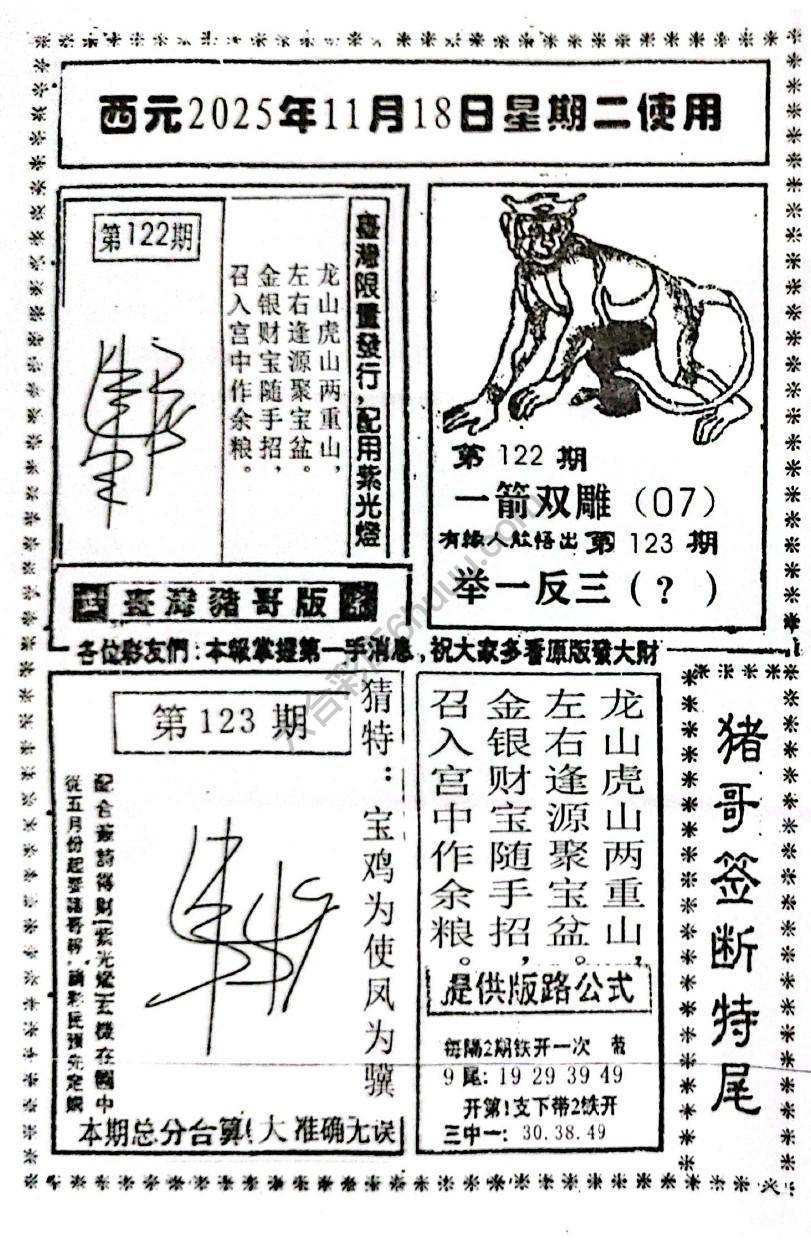 西元2025年11月18日星期二使用
第122期
臺灣限量發行，配用紫光燈
龙山虎山两重山，
左右逢源聚宝盆。
金银财宝随手招，
召入宫中作余粮。
第122期
一箭双雕（07）
有緣人能悟出 第123期
举一反三（？）
臺灣豬哥版
各位彩友們：本報掌握第一手消息，祝大家多看原版發大財
第123期
猜特：宝鸡为使凤为骥
本期总分合算！大 准确无误
龙山虎山两重山，
左右逢源聚宝盆。
金银财宝随手招，
召入宫中作余粮。
提供版路公式
每隔2期铁开一次
9尾：19 29 39 49
开第1支下带2铁开
三中一：30.38.49
猪哥签断特尾